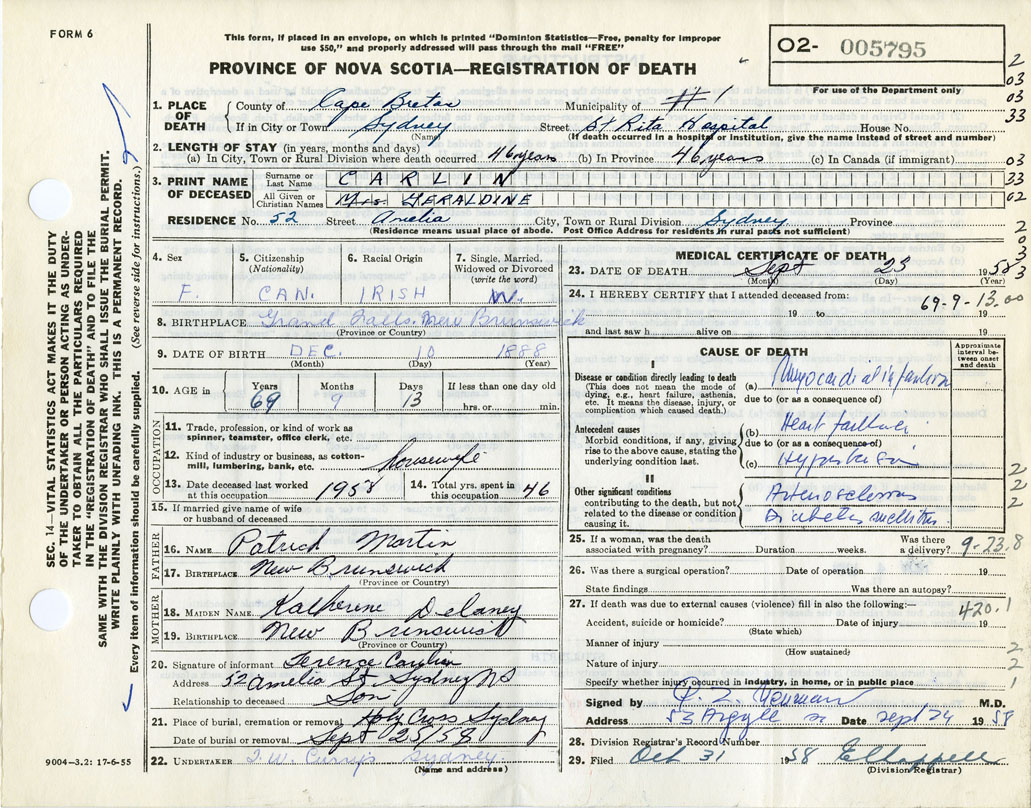 FORM 6
This form, if placed in an envelope, on which is printed "Dominion Statistics—Free, penalty for improper
use $50," and properly addressed will pass through the mail "FREE"
PROVINCE OF NOVA SCOTIA—REGISTRATION OF DEATH
O2- 005795
For use of the Department only
SEC. 14—VITAL STATISTICS ACT MAKES IT THE DUTY
OF THE UNDERTAKER OR PERSON ACTING AS UNDER-
TAKER TO OBTAIN ALL THE PARTICULARS REQUIRED
IN THE "REGISTRATION OF DEATH" AND TO FILE THE
SAME WITH THE DIVISION REGISTRAR WHO SHALL ISSUE THE BURIAL PERMIT.
WRITE PLAINLY WITH UNFADING INK. THIS IS A PERMANENT RECORD.
Every item of information should be carefully supplied. (See reverse side for instructions.)
1. PLACE OF DEATH County of Cape Breton Municipality of # 1
If in City or Town Sydney Street St Rita Hospital House No.
(Name) (If death occurred in a hospital or institution, give the name instead of street and number)
2. LENGTH OF STAY (in years, months and days)
(a) In City, Town or Rural Division where death occurred 46 years (b) In Province 46 years (c) In Canada (if immigrant)
3. PRINT NAME OF DECEASED Surname or Last Name CARLIN
All Given or Christian Names Mrs GERALDINE
RESIDENCE No. 52 Street Amelia City, Town or Rural Division Sydney Province
(Residence means usual place of abode. Post Office Address for residents in rural parts not sufficient)
2
03
03
33
03
33
02
2
0
3
3
4. Sex F.
5. Citizenship (Nationality) CAN.
6. Racial Origin IRISH
7. Single, Married, Widowed or Divorced (write the word) W.
8. BIRTHPLACE Grand Falls, New Brunswick
(Province or Country)
9. DATE OF BIRTH DEC. 10 1888
(Month) (Day) (Year)
10. AGE in Years 69 Months 9 Days 13 If less than one day old
hrs. or min.
OCCUPATION
11. Trade, profession, or kind of work as
spinner, teamster, office clerk, etc.
12. Kind of industry or business, as cotton-
mill, lumbering, bank, etc. housewife
13. Date deceased last worked at this occupation 1958 14. Total yrs. spent in this occupation 46
15. If married give name of wife
or husband of deceased
FATHER
16. NAME Patrick Martin
17. BIRTHPLACE New Brunswick
(Province or Country)
MOTHER
18. MAIDEN NAME Katherine Delaney
19. BIRTHPLACE New Brunswick
(Province or Country)
20. Signature of informant Terence Carlin
Address 52 Amelia St. Sydney NS
Relationship to deceased Son
21. Place of burial, cremation or removal Holy Cross Sydney
Date of burial or removal Sept 25/58
22. UNDERTAKER T.W. Curry's Sydney
(Name and address)
9004—3.2: 17-6-55
MEDICAL CERTIFICATE OF DEATH
23. DATE OF DEATH Sept 23 1958
(Month) (Day) (Year)
24. I HEREBY CERTIFY that I attended deceased from:
69-9-13.00
19 to 19
and last saw h alive on 19
CAUSE OF DEATH
Approximate interval be- tween onset and death
I
Disease or condition directly leading to death
(This does not mean the mode of
dying, e.g., heart failure, asthenia,
etc. It means the disease, injury, or
complication which caused death.)
(a) Myocardial infarction
due to (or as a consequence of)
Antecedent causes
Morbid conditions, if any, giving
rise to the above cause, stating the
underlying condition last.
(b) Heart failure
due to (or as a consequence of)
(c) Hypertension
II
Other significant conditions
contributing to the death, but not
related to the disease or condition
causing it.
Arteriosclerosis
Diabetes mellitus
2
2
2
25. If a woman, was the death
associated with pregnancy? Duration weeks. Was there a delivery?
9-23.8
26. Was there a surgical operation? Date of operation 19
State findings Was there an autopsy?
27. If death was due to external causes (violence) fill in also the following:—
420.1
Accident, suicide or homicide? Date of injury 19
(State which)
Manner of injury 2
(How sustained)
Nature of injury 2
Specify whether injury occurred in industry, in home, or in public place 1
Signed by M.D.
Address 53 Argyle St Date Sept 24 1958
28. Division Registrar's Record Number
29. Filed Oct 31 1958
(Division Registrar)